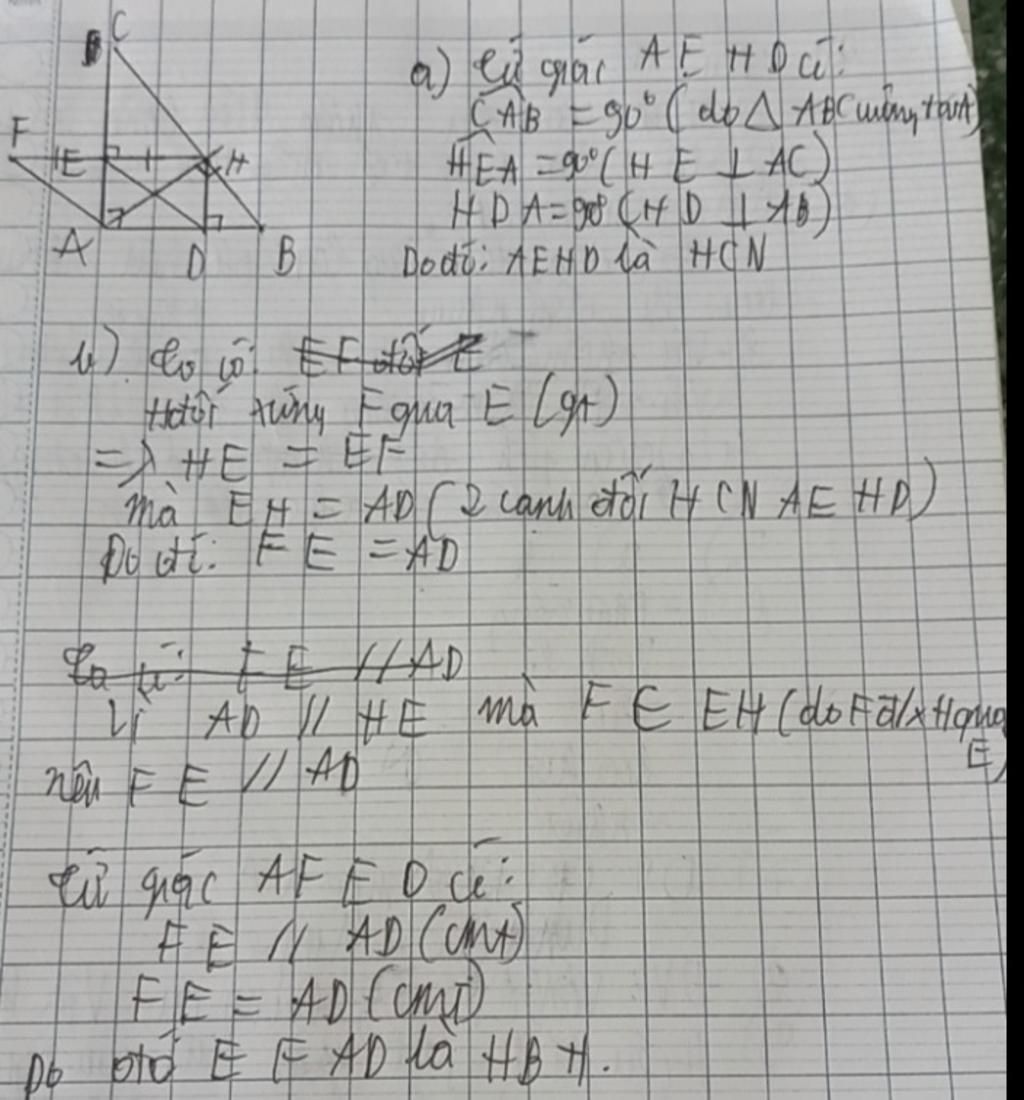 C
F
E
H
A
D
B
a) Tứ giác AEHD có:
CAB = 90° (do △ ABC vuông tại A)
HEA = 90° (HE ⊥ AC)
HDA = 90° (HD ⊥ AB)
Do đó: AEHD là HCN
b) Ta có: EF đối E
H đối xứng F qua E (gt)
=> HE = EF
mà EH = AD (2 cạnh đối HCN AEHD)
Do đó: FE = AD
Ta có: FE // AD
Vì AD // HE mà F ∈ EH (do F đ/x H qua E)
nên FE // AD
Tứ giác AFED có:
FE // AD (cmt)
FE = AD (cmt)
Do đó EFAD là HBH.